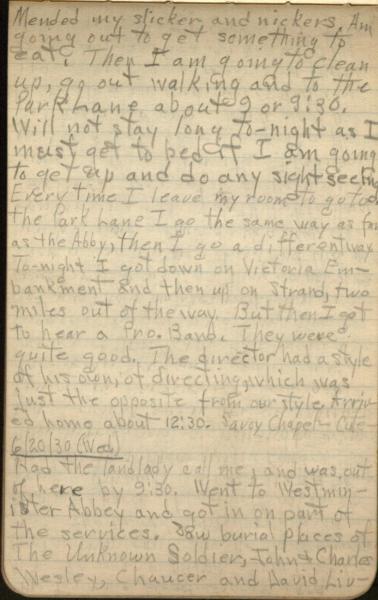 Mended my slicker and nickers. Am
going out to get something to
eat. Then I am going to clean
up, go out walking and to the
Park Lane about 9 or 9:30.
Will not stay long to-night as I
must get to bed if I am going
to get up and do any sight seeing
Every time I leave my room to go to
the Park Lane I go the same way as far
as the Abby, then I go a different way.
To-night I got down on Victoria Em-
bankment and then up on Strand, two
miles out of the way. But then I got
to hear a Pro. Band. They were
quite good. The director had a style
of his own, of directing, which was
just the opposite from our style. Arriv-
ed home about 12:30. Savoy Chapel-
6/20/30 (Wed)
Had the landlady call me, and was out
of here by 9:30. Went to Westmin-
ister Abbey and got in on part of
the services. Saw burial places of
The Unknown Soldier, John & Charles
Wesley, Chaucer and David Liv-